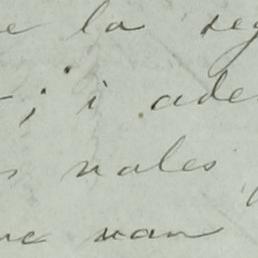 e la seg
; i ade
s nales
ue van